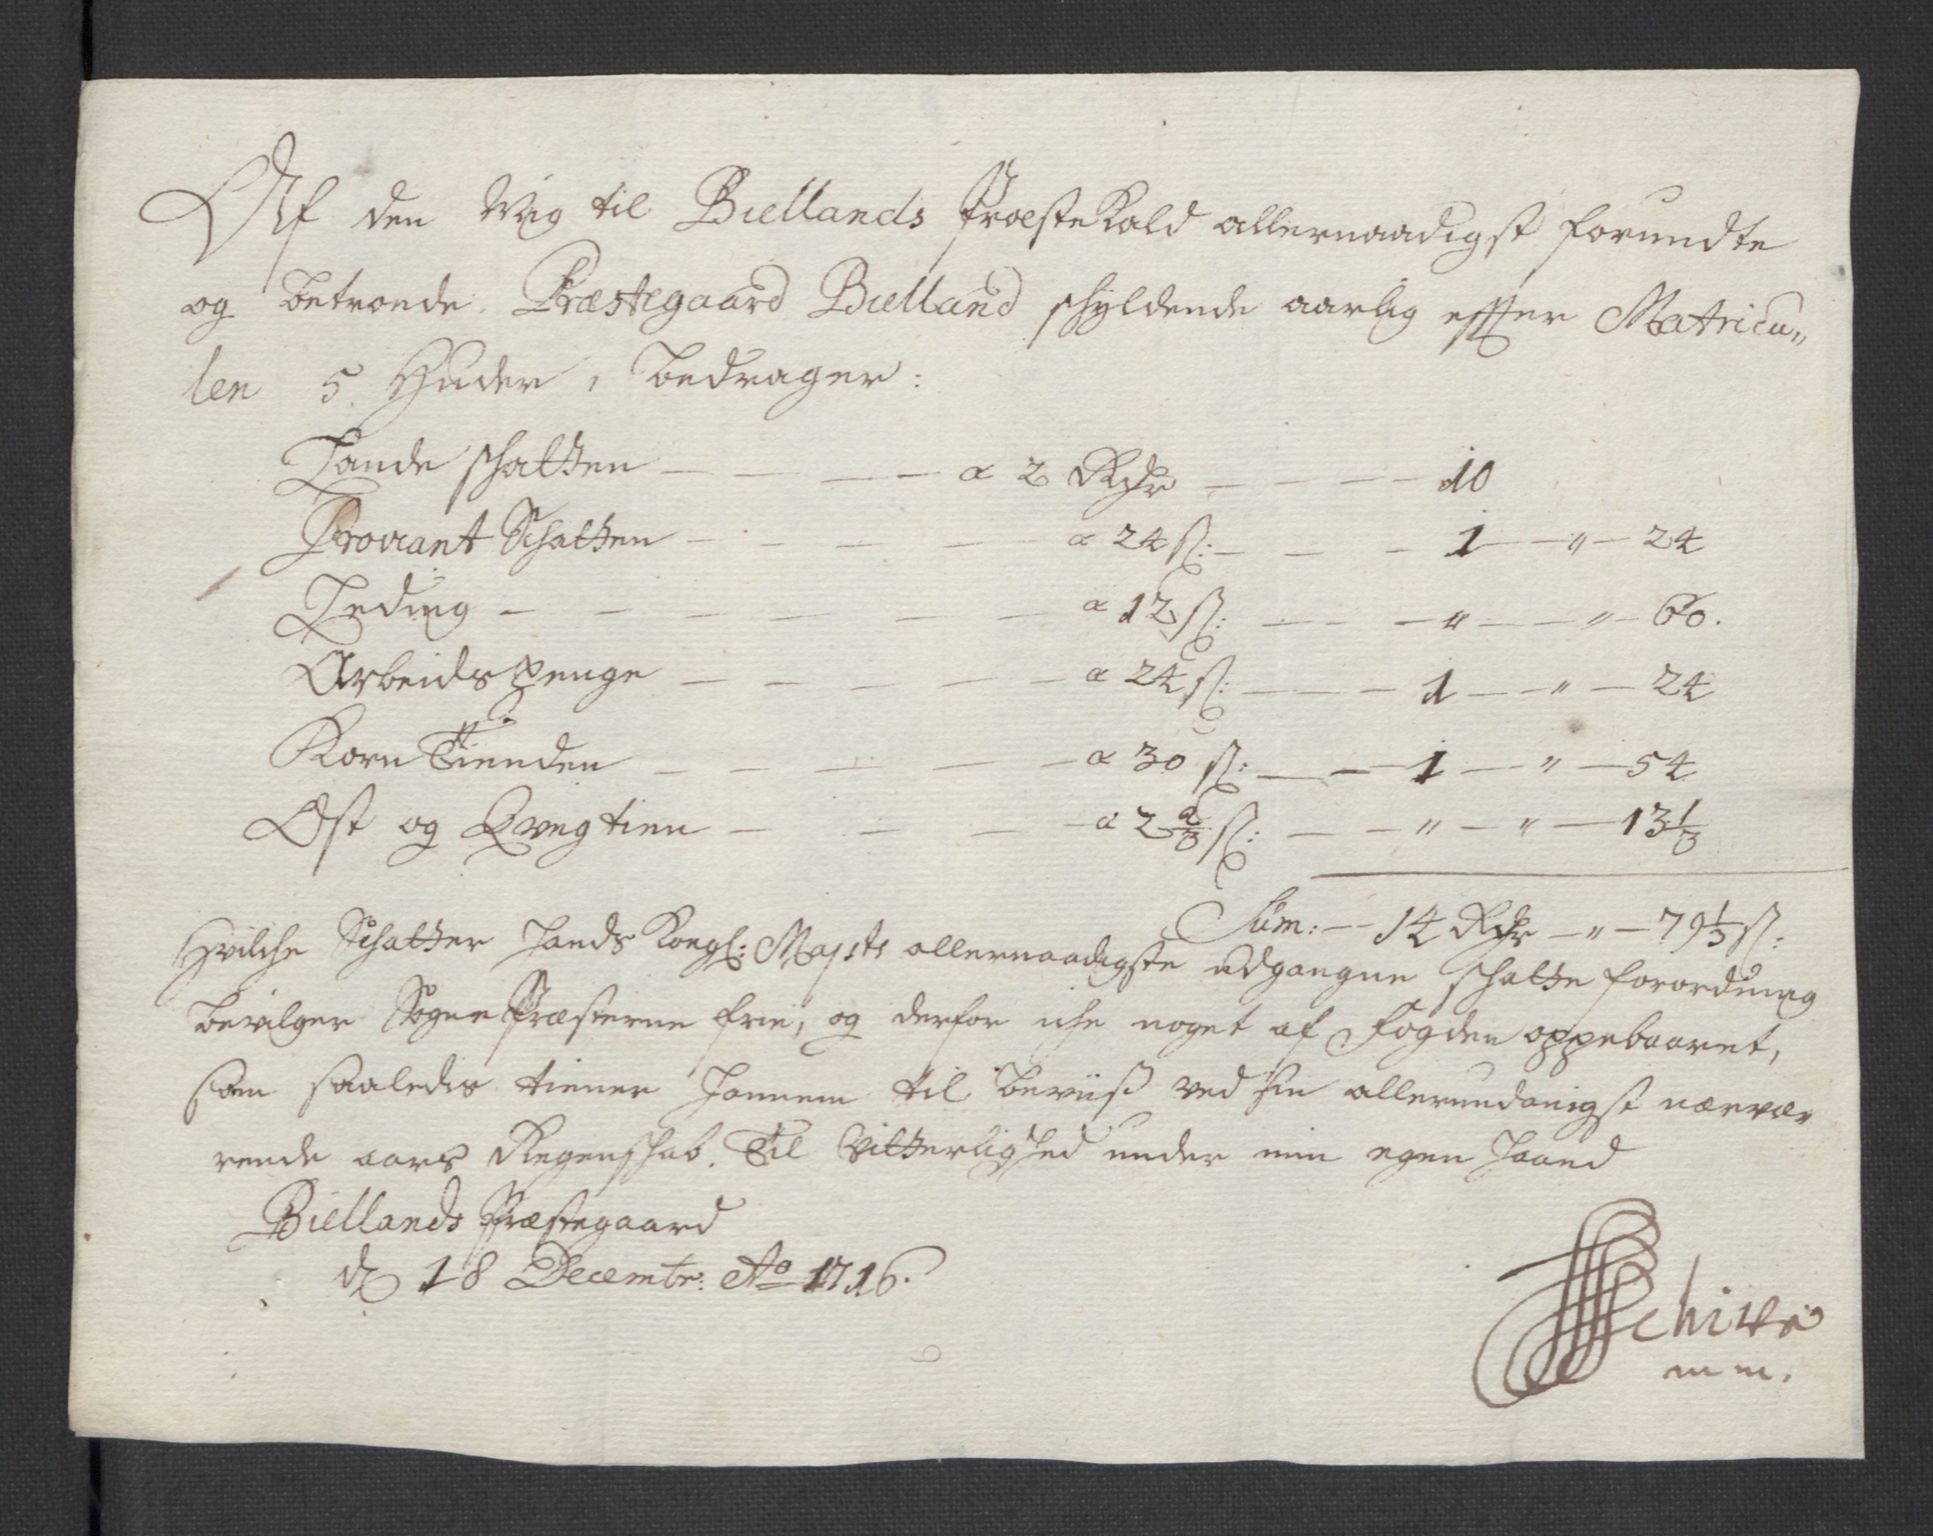 Af den Mig til Biellands Præste Kald allernaadigst forundte
og betroede Præstegaard Bielland schyldende aarlig effter Matricu„
len 5 Huder, bedrager:
Lande schatten — — — — a 2 Rdr — — — — 10
Proviant Schatten — — — — — a 24 s: — — — 1 — „ — 24
Leding — — — — — — — a 12 s: — — — „ — „ — 60.
Arbeids penge — — — — — a 24 s: — — — 1 — „ — 24
Korn Tienden — — — — — — a 30 s: — — 1 — „ — 54
Ost og Qvegtien — — — — a 2 2/3 s: — — „ — „ — 13 1/3
Sum: — 14 Rdr — „ — 79 1/3 s:
Hvilche Schatter Hands Kongl: Majsts allernaadigste udgangne schatte forordning
bevilger Sogne Præsterne frie, og derfor iche noget af Fogden oppebaaret,
som saaledis tiener hannem til beviis ved sin allerunderdanigst nærvæ„
rende aars Regenschab. Til Vitterlighed under min egen Haand
Biellands Præstegaard
d 18 Decembr: Ao 1716.
Schive
mm.